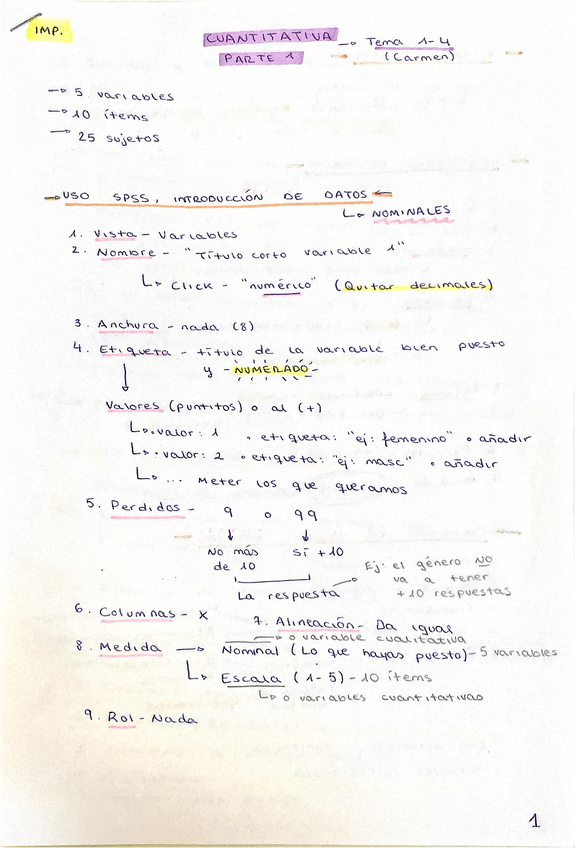 IMP.
CUANTITATIVA → Tema 1-4
PARTE 1 (Carmen)
→ 5 variables
→ 10 ítems
→ 25 sujetos
→ USO SPSS, INTRODUCCIÓN DE DATOS ←
↳ NOMINALES
1. Vista - Variables
2. Nombre - "Título corto variable 1"
↳ Click - "numérico" (Quitar decimales)
3. Anchura - nada (8)
4. Etiqueta - título de la variable bien puesto
y - NUMERADO -
Valores (puntitos) o al (+)
↳ · valor: 1 · etiqueta: "ej: femenino" · añadir
↳ · valor: 2 · etiqueta: "ej: masc" · añadir
↳ ... Meter los que queramos
5. Perdidos - 9 o 99
No más sí +10
de 10
La respuesta → Ej: el género NO
va a tener
+10 respuestas
6. Columnas - X 7. Alineación - Da igual
→ o variable cualitativa
8. Medida → Nominal (Lo que hayas puesto) - 5 variables
↳ Escala (1-5) - 10 ítems
↳ o variables cuantitativas
9. Rol - Nada
1